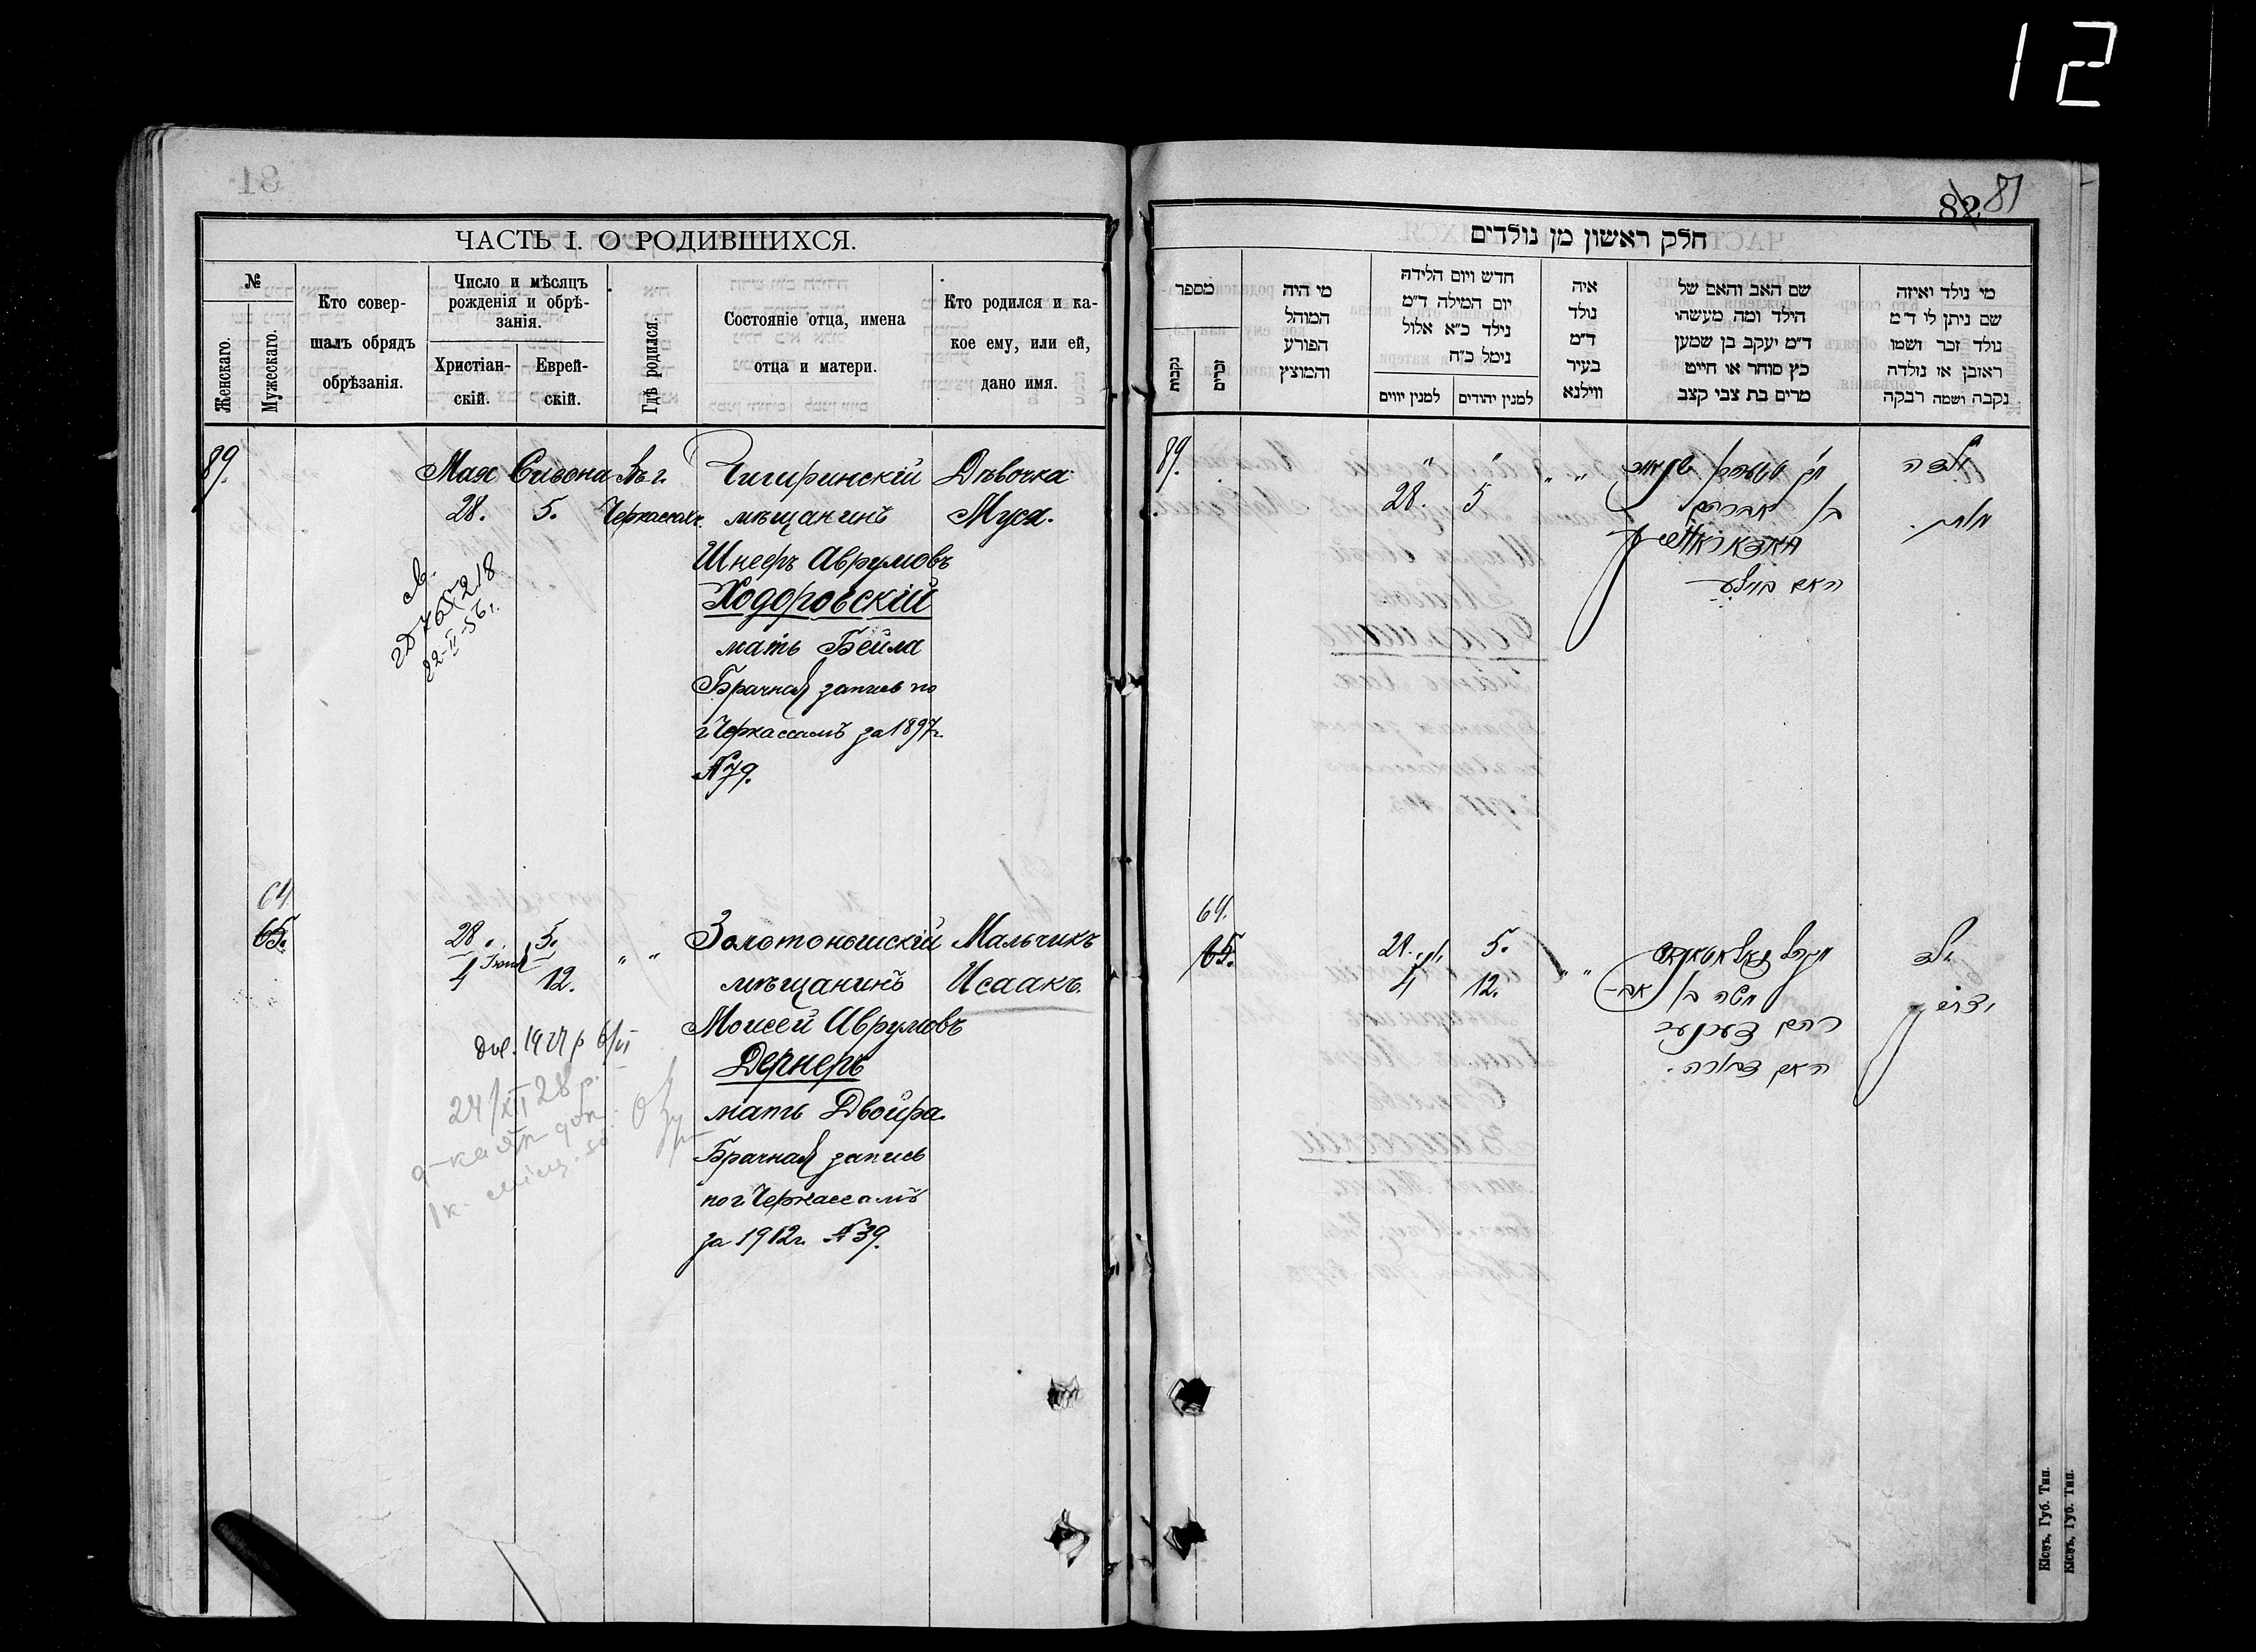 12
81
82 81
ЧАСТЬ I. О РОДИВШИХСЯ.
№
Женскаго.
Мужескаго.
Кто совер-
шалъ обрядъ
обрѣзанія.
Число и мѣсяцъ
рожденія и обрѣ-
занія.
Христіан-
скій.
Еврей-
скій.
Гдѣ родился.
Состояніе отца, имена
отца и матери.
Кто родился и ка-
кое ему, или ей,
дано имя.
89.
Мая Сивона Въ г.
28. 5. Черкассахъ.
Чигиринскій
мѣщанинъ
Шнееръ Аврумовъ
Ходоровскій
мать Бейла
Брачная запись по
г. Черкассамъ за 1897 г.
№ 79.
Дѣвочка
Муся.
22-II-56 г.
64
65.
28. 5. " "
4 Іюня 12.
Золотоношскій
мѣщанинъ
Моисей Аврумовъ
Дернеръ
мать Двойра.
Брачная запись
по г. Черкассамъ
за 1912 г. № 39.
Мальчикъ
Исаакъ.
24/XII 28 р.
חלק ראשון מן נולדים
מספר
נקבות
זכרים
מי היה
המוהל
הפורע
והמוצץ
חדש ויום הלידה
יום המילה ד״מ
נילד כ״א אלול
נימל כ״ח
למנין יווים
למנין יהודים
איה
נולד
ד״מ
בעיר
ווילנא
שם האב והאם של
הילד ומה מעשהו
ד״מ יעקב בן שמען
כץ סוחר או חייט
מרים בת צבי קצב
מי נולד ואיזה
שם ניתן לו ד״מ
נולד זכר ושמו
ראובן או נולדה
נקבה ושמה רבקה
89.
" "
28. 5 " "
בן אברהם
האם ביילע
ילדה
64.
65.
28. 5. " "
4 12.
משה בן אב-
רהם
האם דבורה.
ילד
יצחק
Кіевъ, Губ. Тип.
Кіевъ, Губ. Тип.